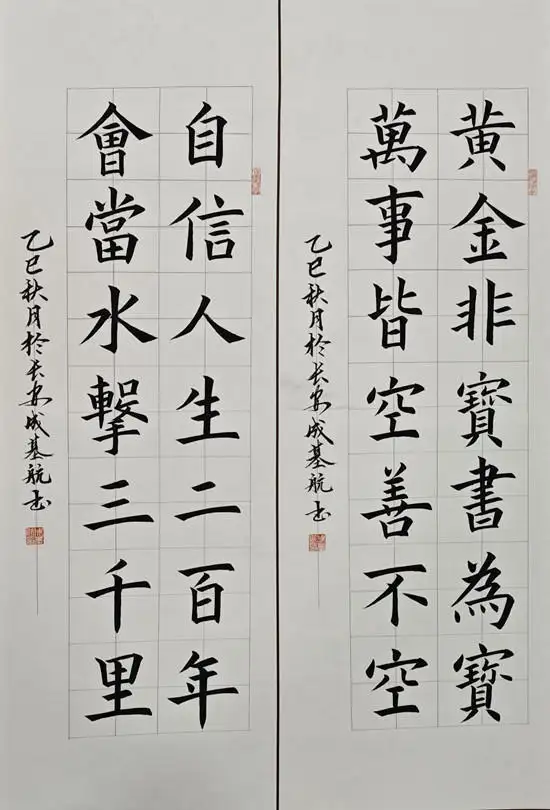 黄金非寶書為寶
萬事皆空善不空
乙巳秋月於长安成基航书
自信人生二百年
會當水擊三千里
乙巳秋月於长安成基航书